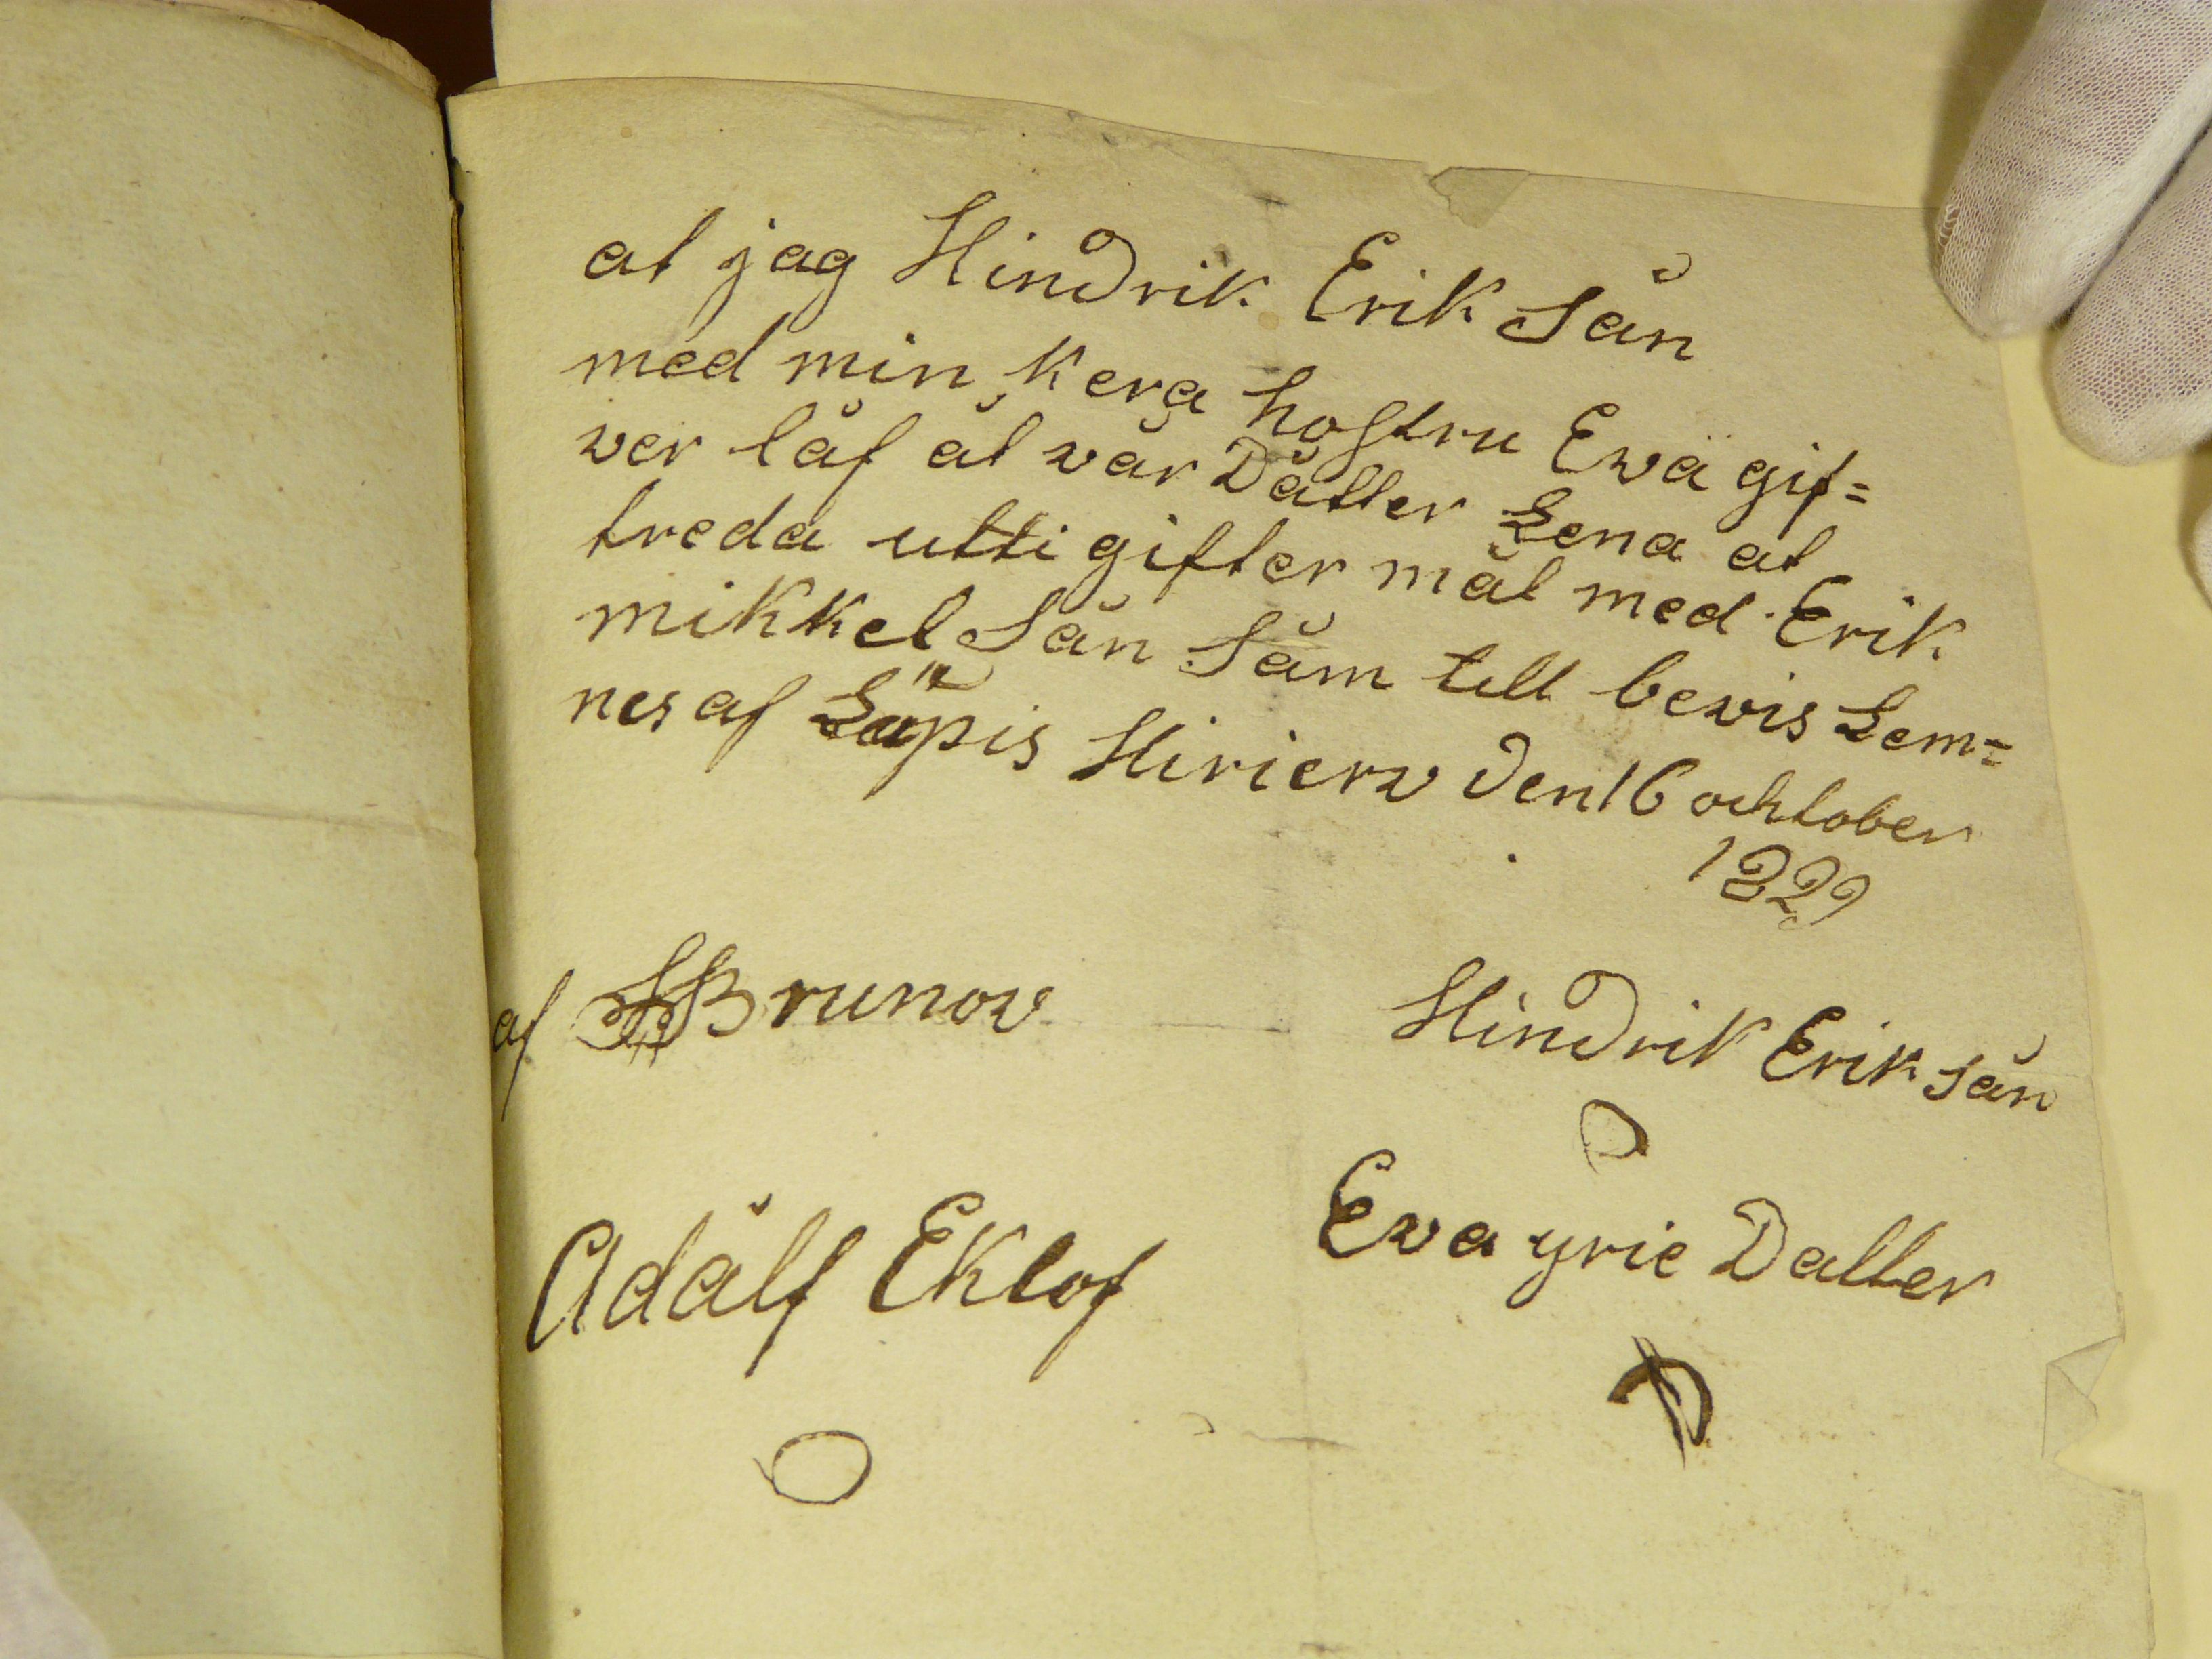 at jag Hindrik Erik Sån
med min Kera hostru Ewa gif=
ver låf åt vår Dåtter Lena at
treda utti gifter mål med Erik
mikkel Sån Såm till bevis Lem=
nes af Läpis Hirierv den 16 ochtober
1829
af Brunov
Hindrik Erik sån
Adålf Eklof
Eva yrie Datter